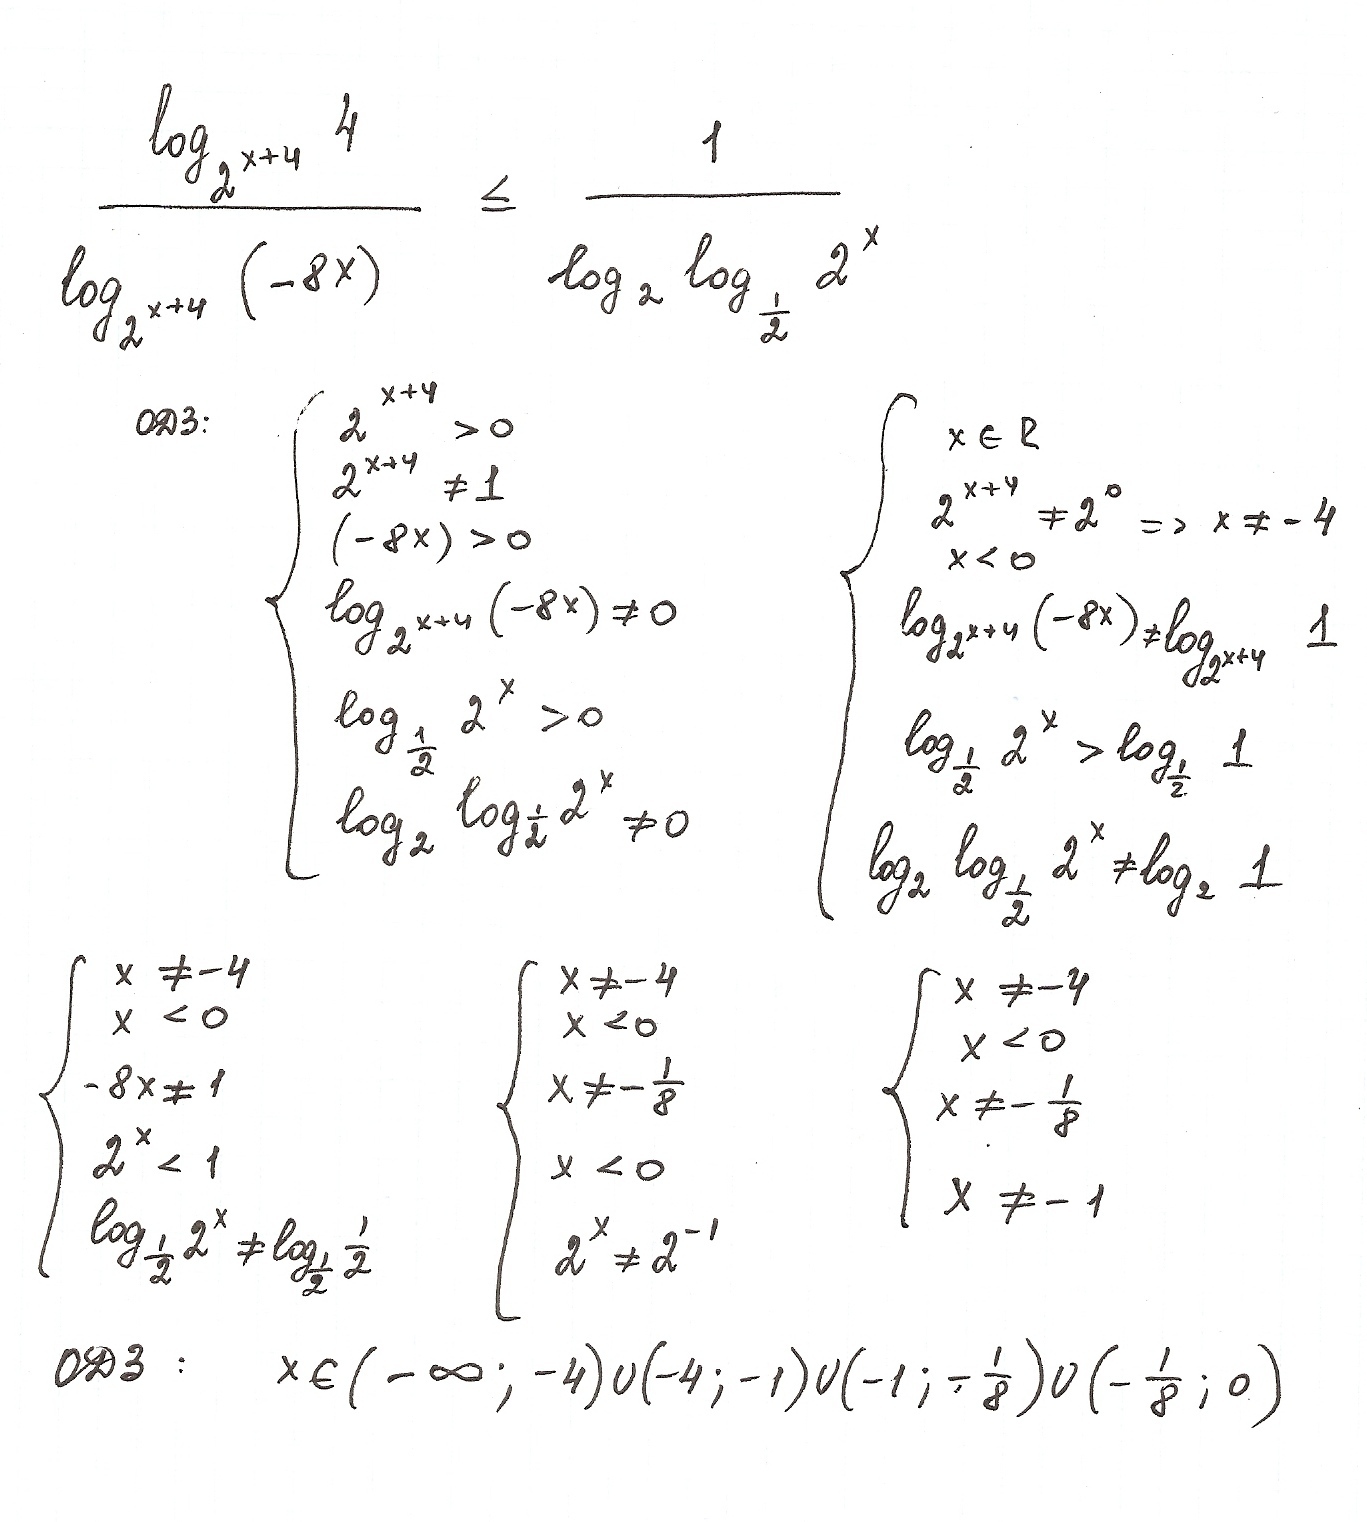 log_{2^{x+4}} 4 / log_{2^{x+4}} (-8x) ≤ 1 / log_2 log_{1/2} 2^x
ОДЗ:
2^{x+4} > 0
2^{x+4} ≠ 1
(-8x) > 0
log_{2^{x+4}} (-8x) ≠ 0
log_{1/2} 2^x > 0
log_2 log_{1/2} 2^x ≠ 0
x ∈ R
2^{x+4} ≠ 2^0 => x ≠ -4
x < 0
log_{2^{x+4}} (-8x) ≠ log_{2^{x+4}} 1
log_{1/2} 2^x > log_{1/2} 1
log_2 log_{1/2} 2^x ≠ log_2 1
x ≠ -4
x < 0
-8x ≠ 1
2^x < 1
log_{1/2} 2^x ≠ log_{1/2} 1/2
x ≠ -4
x < 0
x ≠ -1/8
x < 0
2^x ≠ 2^{-1}
x ≠ -4
x < 0
x ≠ -1/8
x ≠ -1
ОДЗ: x ∈ (-∞; -4) ∪ (-4; -1) ∪ (-1; -1/8) ∪ (-1/8; 0)